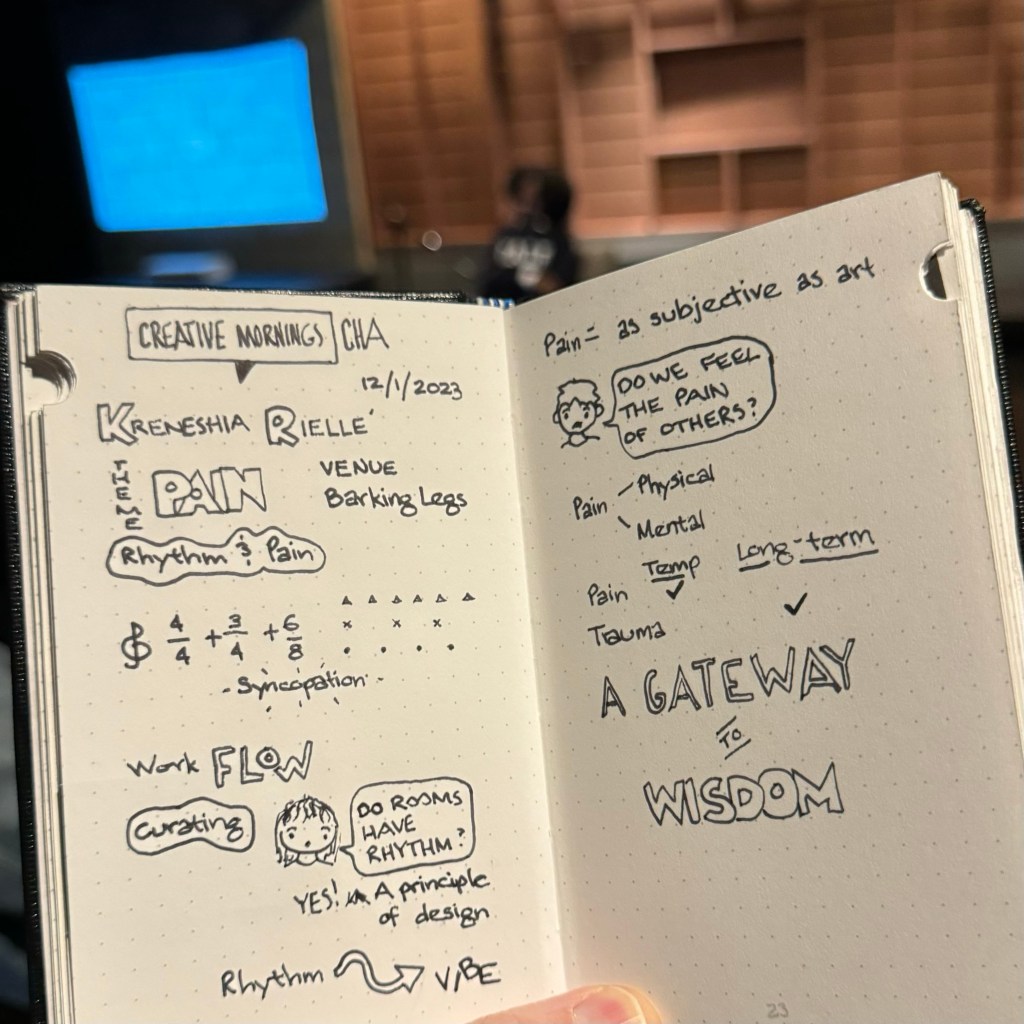 CREATIVE MORNINGS CHA
12/1/2023
KRENESHIA RIELLE'
THEME PAIN
VENUE
Barking Legs
Rhythm & Pain
4/4 + 3/4 + 6/8
- Syncopation -
Work FLOW
Curating
DO ROOMS
HAVE
RHYTHM?
YES! A principle
of design
Rhythm VIBE
Pain = as subjective as art
DO WE FEEL
THE PAIN
OF OTHERS?
Pain Physical
Mental
Temp Long-term
Pain ✓
Trauma ✓
A GATEWAY
TO
WISDOM
23